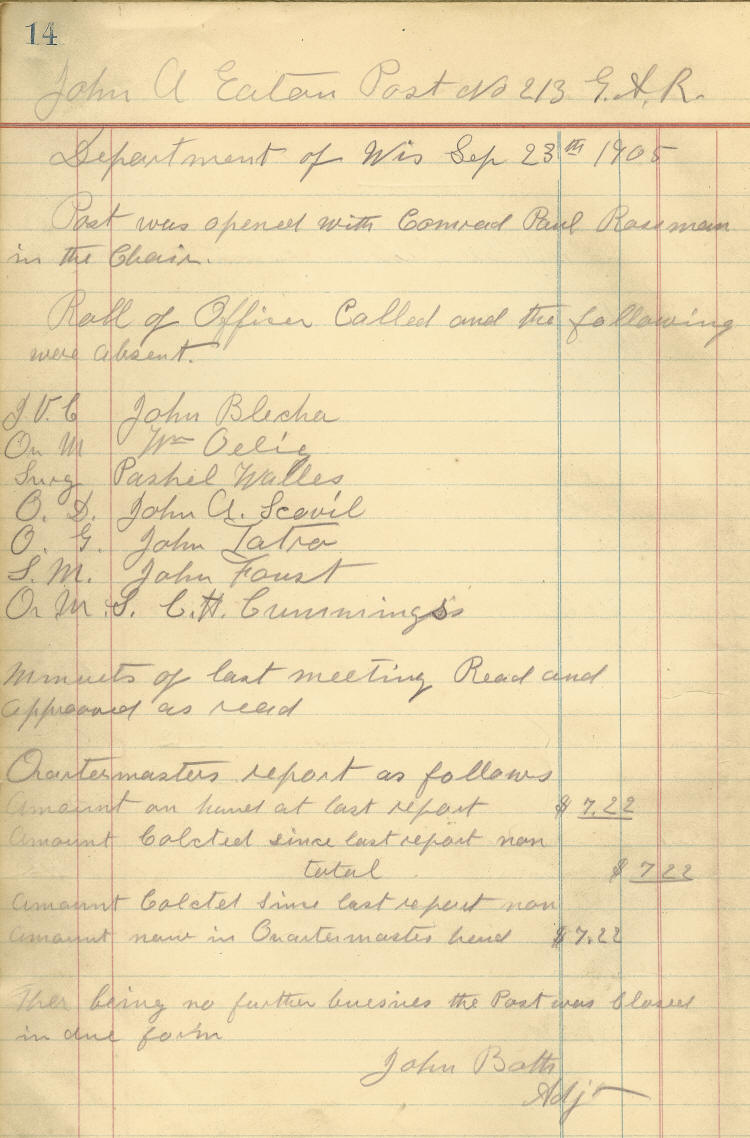 14
John A Eaton Post No 213 G.A.R.
Department of Wis Sep 23th 1905
Post was opened with Comrad Paul Rossman
in the Chair.
Roll of Officer Called and the following
were absent.
J.V.C John Blecha
Qu M Wm
Surg Walles
O. D. John A. Scovil
O. G. John Tatro
S. M. John Foust
Qr M. S. C.H. Cummings
Minuets of last meeting Read and
approoved as read
Quartermasters report as follows
Amount on hand at last report $ 7.22
Amount Colcted since last report non
total $ 7 22
Amount Colcted since last report non
Amount now in Quartermaster hand $ 7.22
Ther being no further buesnies the Post was Closed
in due form
John Bath
Adjt